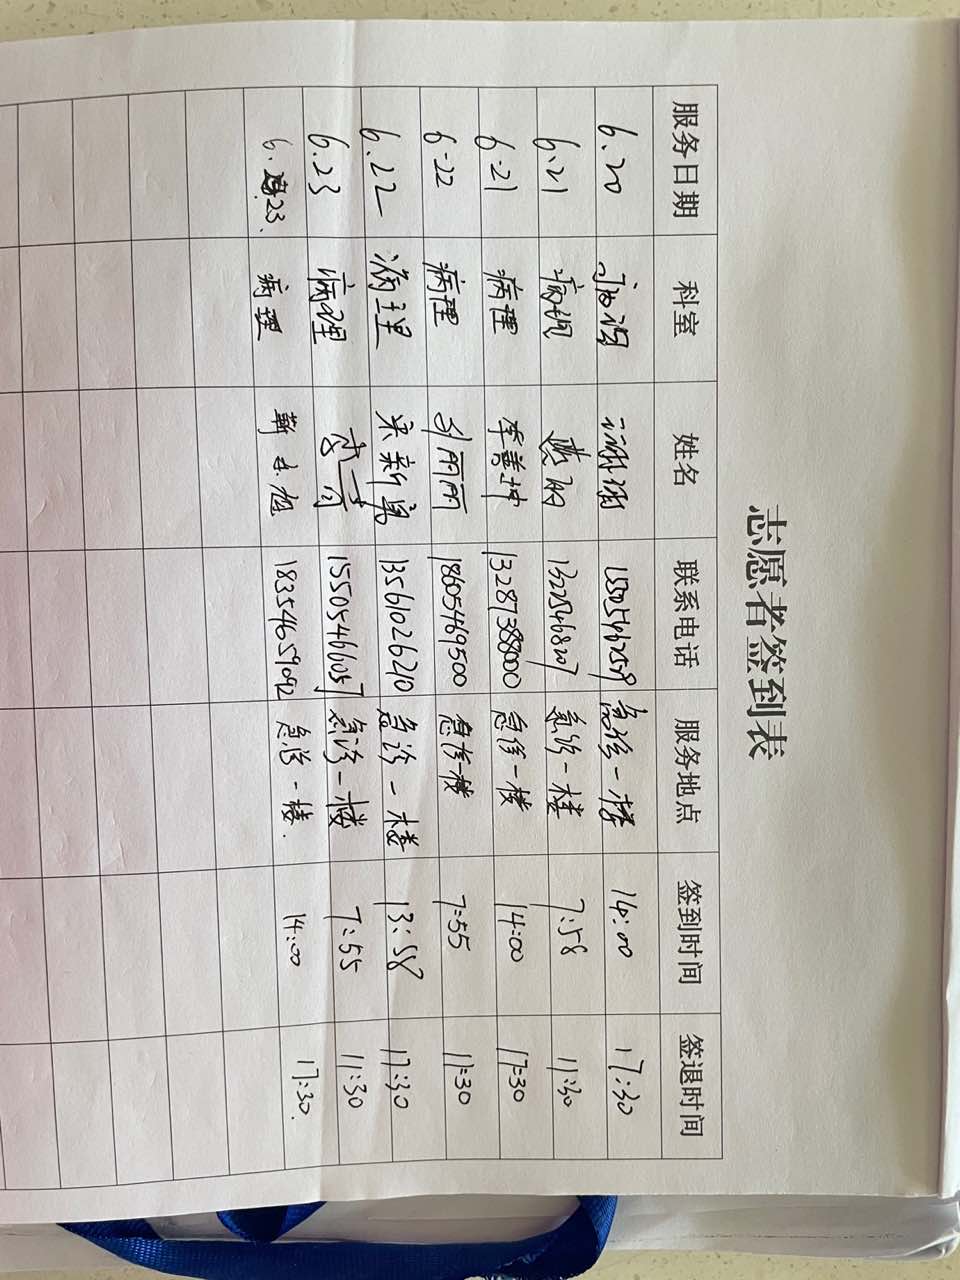 志愿者签到表
服务日期 科室 姓名 联系电话 服务地点 签到时间 签退时间
6.20 急诊一楼 14:00 17:30
6.21 病理 13225468207 急诊一楼 7:58 11:30
6.21 病理 李善坤 13287388000 急诊一楼 14:00 17:30
6.22 病理 丽丽 18605469500 急诊一楼 7:55 11:30
6.22 病理 宋新 13561026210 急诊一楼 13:58 17:30
6.23 病理 15505466057 急诊一楼 7:55 11:30
6.23. 病理 靳 旭 18354659092 急诊一楼. 14:00 17:30.